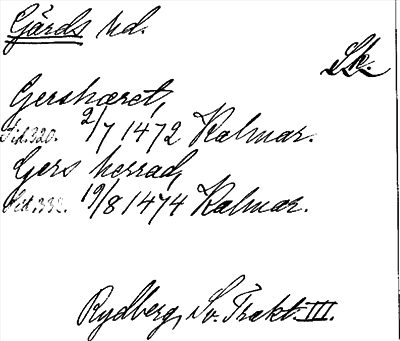 Gärds hd.
Sk.
Gershæret,
Sid. 320. 2/7 1472 Kalmar.
Gers herrad,
Sid. 332. 19/8 1474 Kalmar.
Rydberg, Sv. Trakt. III.